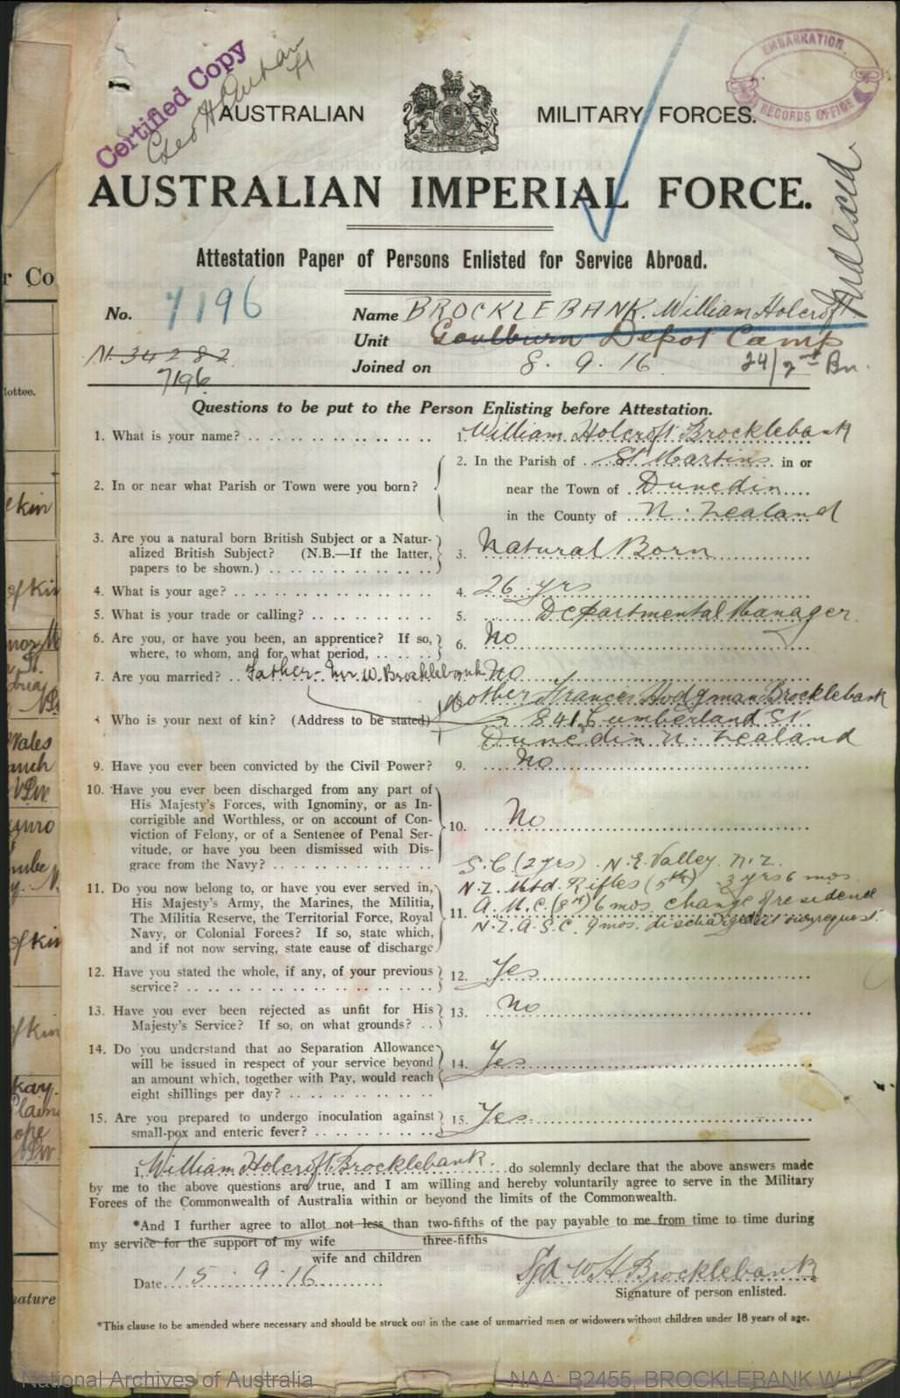 Certified Copy
EMBARKATION
RECORDS OFFICE
AUSTRALIAN MILITARY FORCES.
Indexed
AUSTRALIAN IMPERIAL FORCE.
Attestation Paper of Persons Enlisted for Service Abroad.
No. 7196 Name BROCKLEBANK William Holcroft
Unit Goulburn Depot Camp
N. 34282
7196
Joined on 8. 9. 16 24/2nd Bn.
Questions to be put to the Person Enlisting before Attestation.
1. What is your name? 1. William Holcroft Brocklebank
2. In or near what Parish or Town were you born? 2. In the Parish of St Martins in or
near the Town of Dunedin
in the County of N. Zealand
3. Are you a natural born British Subject or a Natur-
alized British Subject? (N.B.—If the latter,
papers to be shown.) 3. Natural Born
4. What is your age? 4. 26 yrs
5. What is your trade or calling? 5. Departmental Manager
6. Are you, or have you been, an apprentice? If so,
where, to whom, and for what period, 6. No
7. Are you married? No
Father- Mr. W. Brocklebank
Who is your next of kin? (Address to be stated) Mother Frances Hodgman Brocklebank
841 Cumberland St
Dunedin N. Zealand
9. Have you ever been convicted by the Civil Power? 9. No
10. Have you ever been discharged from any part of
His Majesty's Forces, with Ignominy, or as In-
corrigible and Worthless, or on account of Con-
viction of Felony, or of a Sentence of Penal Ser-
vitude, or have you been dismissed with Dis-
grace from the Navy? 10. No
11. Do you now belong to, or have you ever served in,
His Majesty's Army, the Marines, the Militia,
The Militia Reserve, the Territorial Force, Royal
Navy, or Colonial Forces? If so, state which,
and if not now serving, state cause of discharge 11.
S.C. (2 yrs) N.E. Valley N.Z.
N.Z. Mtd. Rifles (5th) 3 yrs 6 mos
A.M.C. (8th) 6 mos. change of residence
N.Z.A.S.C. 9 mos. discharged at my request.
12. Have you stated the whole, if any, of your previous
service? 12. Yes
13. Have you ever been rejected as unfit for His
Majesty's Service? If so, on what grounds? 13. No
14. Do you understand that no Separation Allowance
will be issued in respect of your service beyond
an amount which, together with Pay, would reach
eight shillings per day? 14. Yes
15. Are you prepared to undergo inoculation against
small-pox and enteric fever? 15. Yes
I, William Holcroft Brocklebank do solemnly declare that the above answers made
by me to the above questions are true, and I am willing and hereby voluntarily agree to serve in the Military
Forces of the Commonwealth of Australia within or beyond the limits of the Commonwealth.
*And I further agree to allot not less than two-fifths of the pay payable to me from time to time during
three-fifths
my service for the support of my wife
wife and children
Date 15. 9. 16 Sgd W H Brocklebank
Signature of person enlisted.
*This clause to be amended where necessary and should be struck out in the case of unmarried men or widowers without children under 18 years of age.
National Archives of Australia NAA: B2455, BROCKLEBANK W H